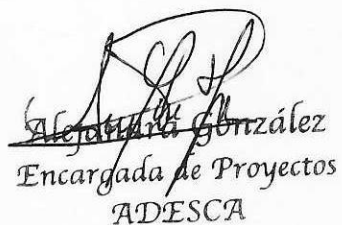 Alejandra González
Encargada de Proyectos
ADESCA